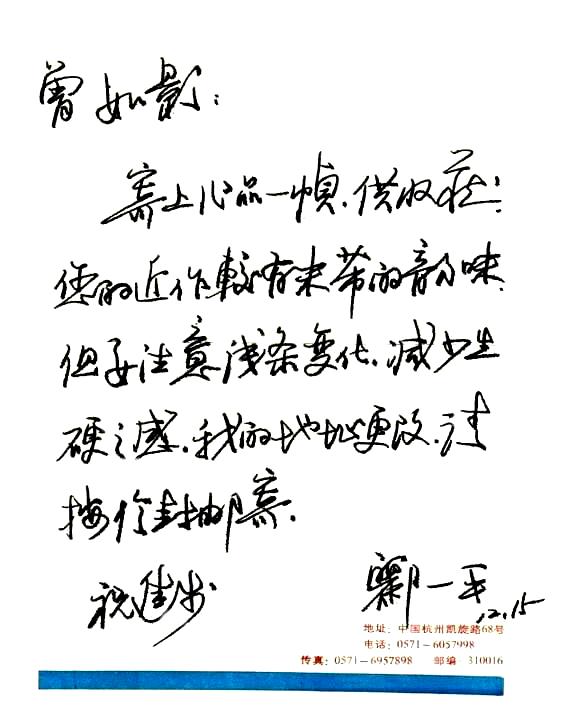 曾如影：
寄上小品一幀，供收藏！
您的近作較有 的韵味，
但要注意线条变化，减少生
硬之感。我的地址更改，请
按信封邮寄。
祝进步
一平
12.15
地址：中国杭州凯旋路68号
电话：0571－6057998
传真：0571－6957898 邮编 310016